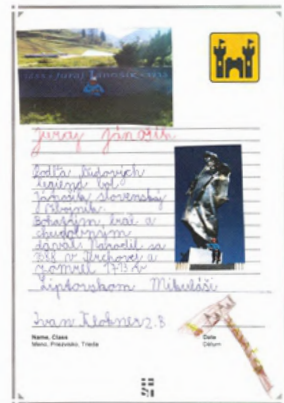 Juraj Jánošík
Podľa ľudových
legiend bol
Jánošík slovenský
zbojník.
Bohatým bral a
chudobným
dával. Narodil sa
1688 v Terchovej a
zomrel 1713 v
Liptovskom Mikuláši
Ivan Klohner 2.B
Name, Class
Meno, Priezvisko, Trieda
Date
Dátum